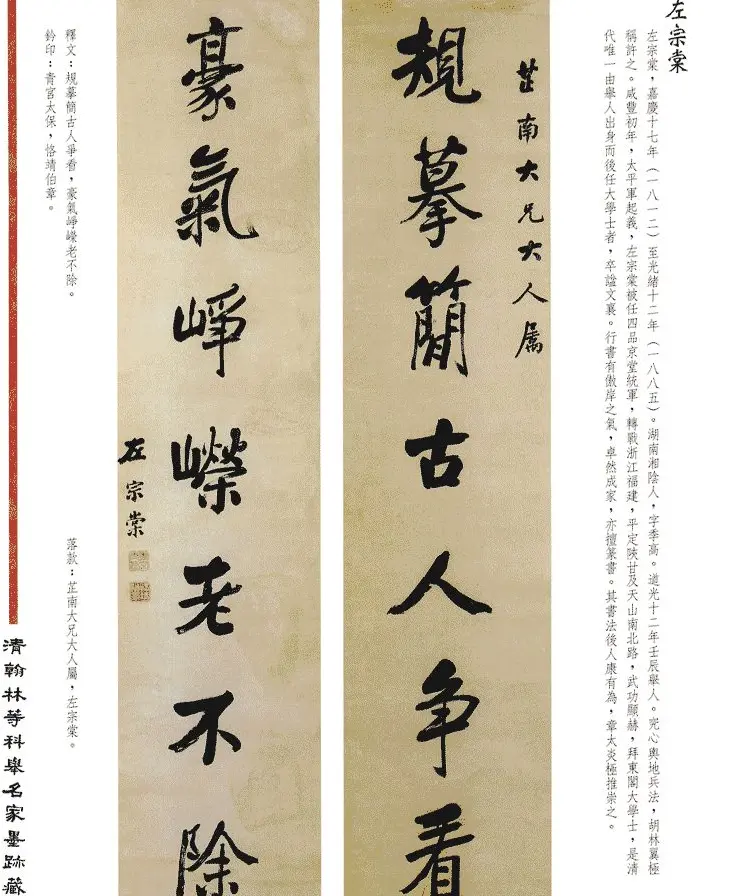 左宗棠
左宗棠，嘉慶十七年（一八一二）至光緒十二年（一八八五）。湖南湘陰人，字季高。道光十二年壬辰舉人。究心輿地兵法，胡林翼極
稱許之。咸豐初年，太平軍起義，左宗棠被任四品京堂統軍，轉戰浙江福建，平定陝甘及天山南北路，武功顯赫，拜東閣大學士，是清
代唯一由舉人出身而後任大學士者，卒謚文襄。行書有傲岸之氣，卓然成家，亦擅篆書。其書法後人康有為，章太炎極推崇之。
芷南大兄大人属
規摹簡古人争看
豪氣崢嶸老不除
左宗棠
釋文：規摹簡古人爭看，豪氣崢嶸老不除。
鈐印：青宮太保，恪靖伯章。
落款：芷南大兄大人屬，左宗棠。
清翰林等科舉名家墨跡藏